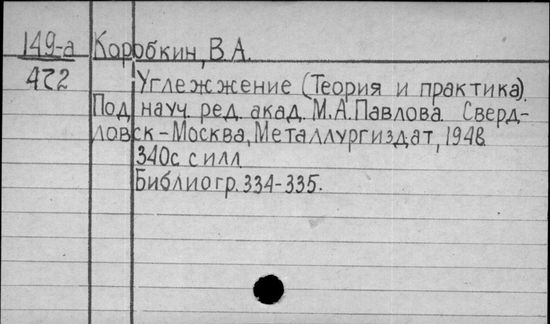 149-а Коробкин, В.А.
472 Углежжение (Теория и практика).
Под науч. ред. акад. М.А.Павлова. Сверд-
ловск-Москва, Металлургиздат, 1948.
340с. с илл.
Библиогр. 334-335.